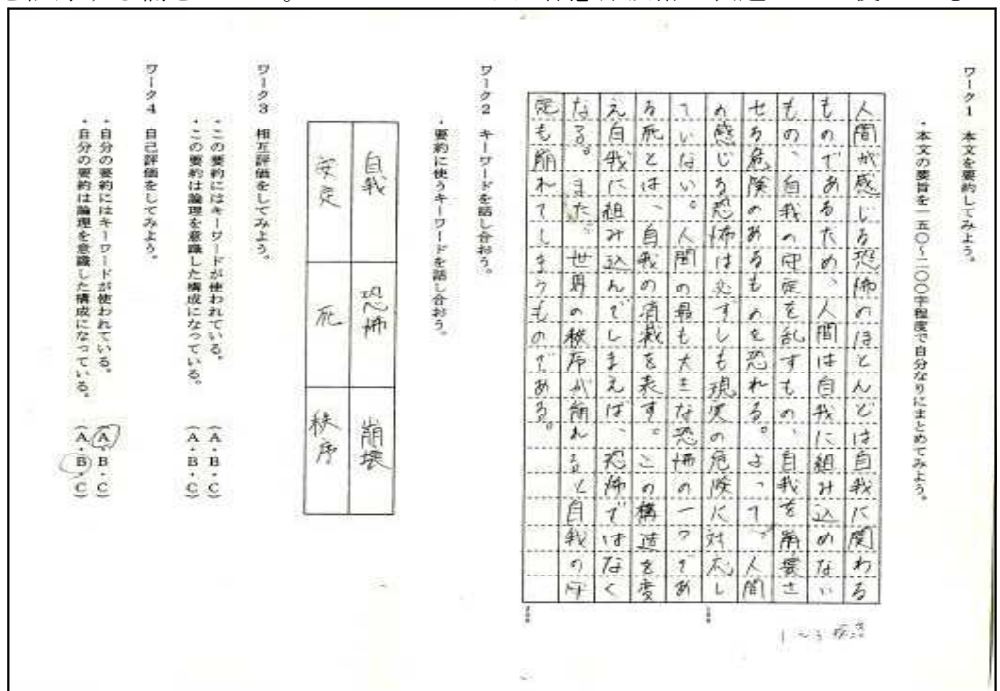 ワーク1　本文を要約してみよう。
・本文の要旨を一五〇～二〇〇字程度で自分なりにまとめてみよう。
人間が感じる恐怖のほとんどは自我に関わる
ものであるため、人間は自我に組み込めない
もの、自我の安定を乱すもの、自我を崩壊さ
せる危険のあるものを恐れる。よって、人間
の感じる恐怖は必ずしも現実の危険に対応し
ていない。人間の最も大きな恐怖の一つであ
る死とは、自我の消滅を表す。この構造を変
え自我に組み込んでしまえば、恐怖ではなく
なる。また、世界の秩序が崩れると自我の安
定も崩れてしまうものである。
ワーク2　キーワードを話し合おう。
・要約に使うキーワードを話し合おう。
自我　恐怖　崩壊
安定　死　秩序
ワーク3　相互評価をしてみよう。
・この要約にはキーワードが使われている。　（A・B・C）
・この要約は論理を意識した構成になっている。　（A・B・C）
ワーク4　自己評価をしてみよう。
・自分の要約にはキーワードが使われている。　（A・B・C）
・自分の要約は論理を意識した構成になっている。　（A・B・C）